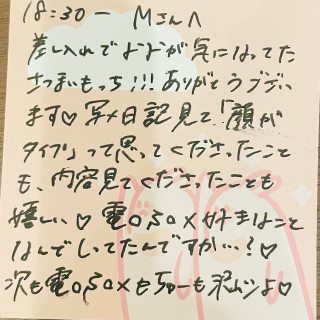 18:30ー Mさんへ
差し入れでよよが気になってた
さつまいもっち!!!ありがとうブヂい
ます♡ 写メ日記見て、「顔が
タイプ」って思ってくださったこと
も、内容見てくださったことも
嬉しい♡ 電○ふ○×好きなこと
なんでしってたんですか…?♡
次も電○ふ○×もちゅーも沢山シよ♡